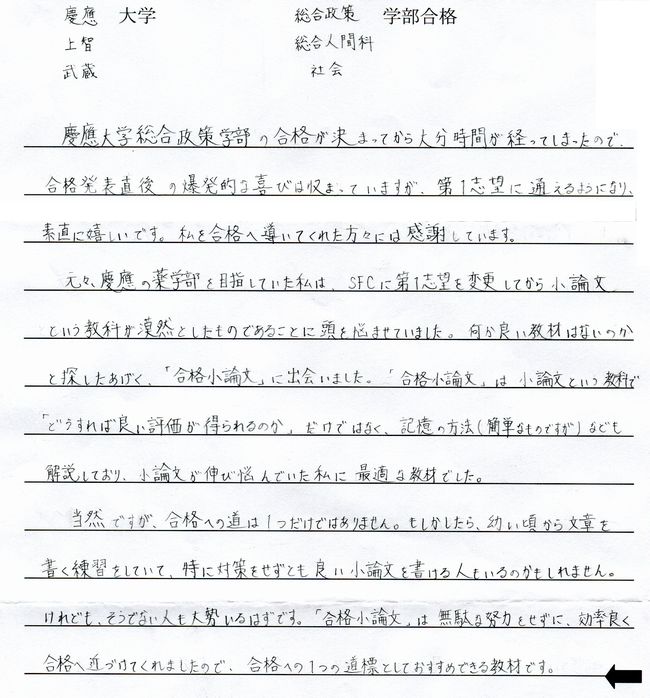 慶應 大学 総合政策 学部合格
上智 総合人間科
武蔵 社会
慶應大学総合政策学部の合格が決まってから大分時間が経ってしまったので、
合格発表直後の爆発的な喜びは収まっていますが、第1志望に通えるようになり、
素直に嬉しいです。私を合格へ導いてくれた方々には感謝しています。
元々、慶應の薬学部を目指していた私は、SFCに第1志望を変更してから小論文
という教科が漠然としたものであることに頭を悩ませていました。何か良い教材はないのか
と探したあげく、「合格小論文」に出会いました。「合格小論文」は小論文という教科で
「どうすれば良い評価が得られるのか」だけではなく、記憶の方法(簡単なものですが)なども
解説しており、小論文が伸び悩んでいた私に最適な教材でした。
当然ですが、合格への道は1つだけではありません。もしかしたら、幼い頃から文章を
書く練習をしていて、特に対策をせずとも良い小論文を書ける人もいるのかもしれません。
けれども、そうでない人も大勢いるはずです。「合格小論文」は無駄な努力をせずに、効率良く
合格へ近づけてくれましたので、合格への1つの道標としておすすめできる教材です。